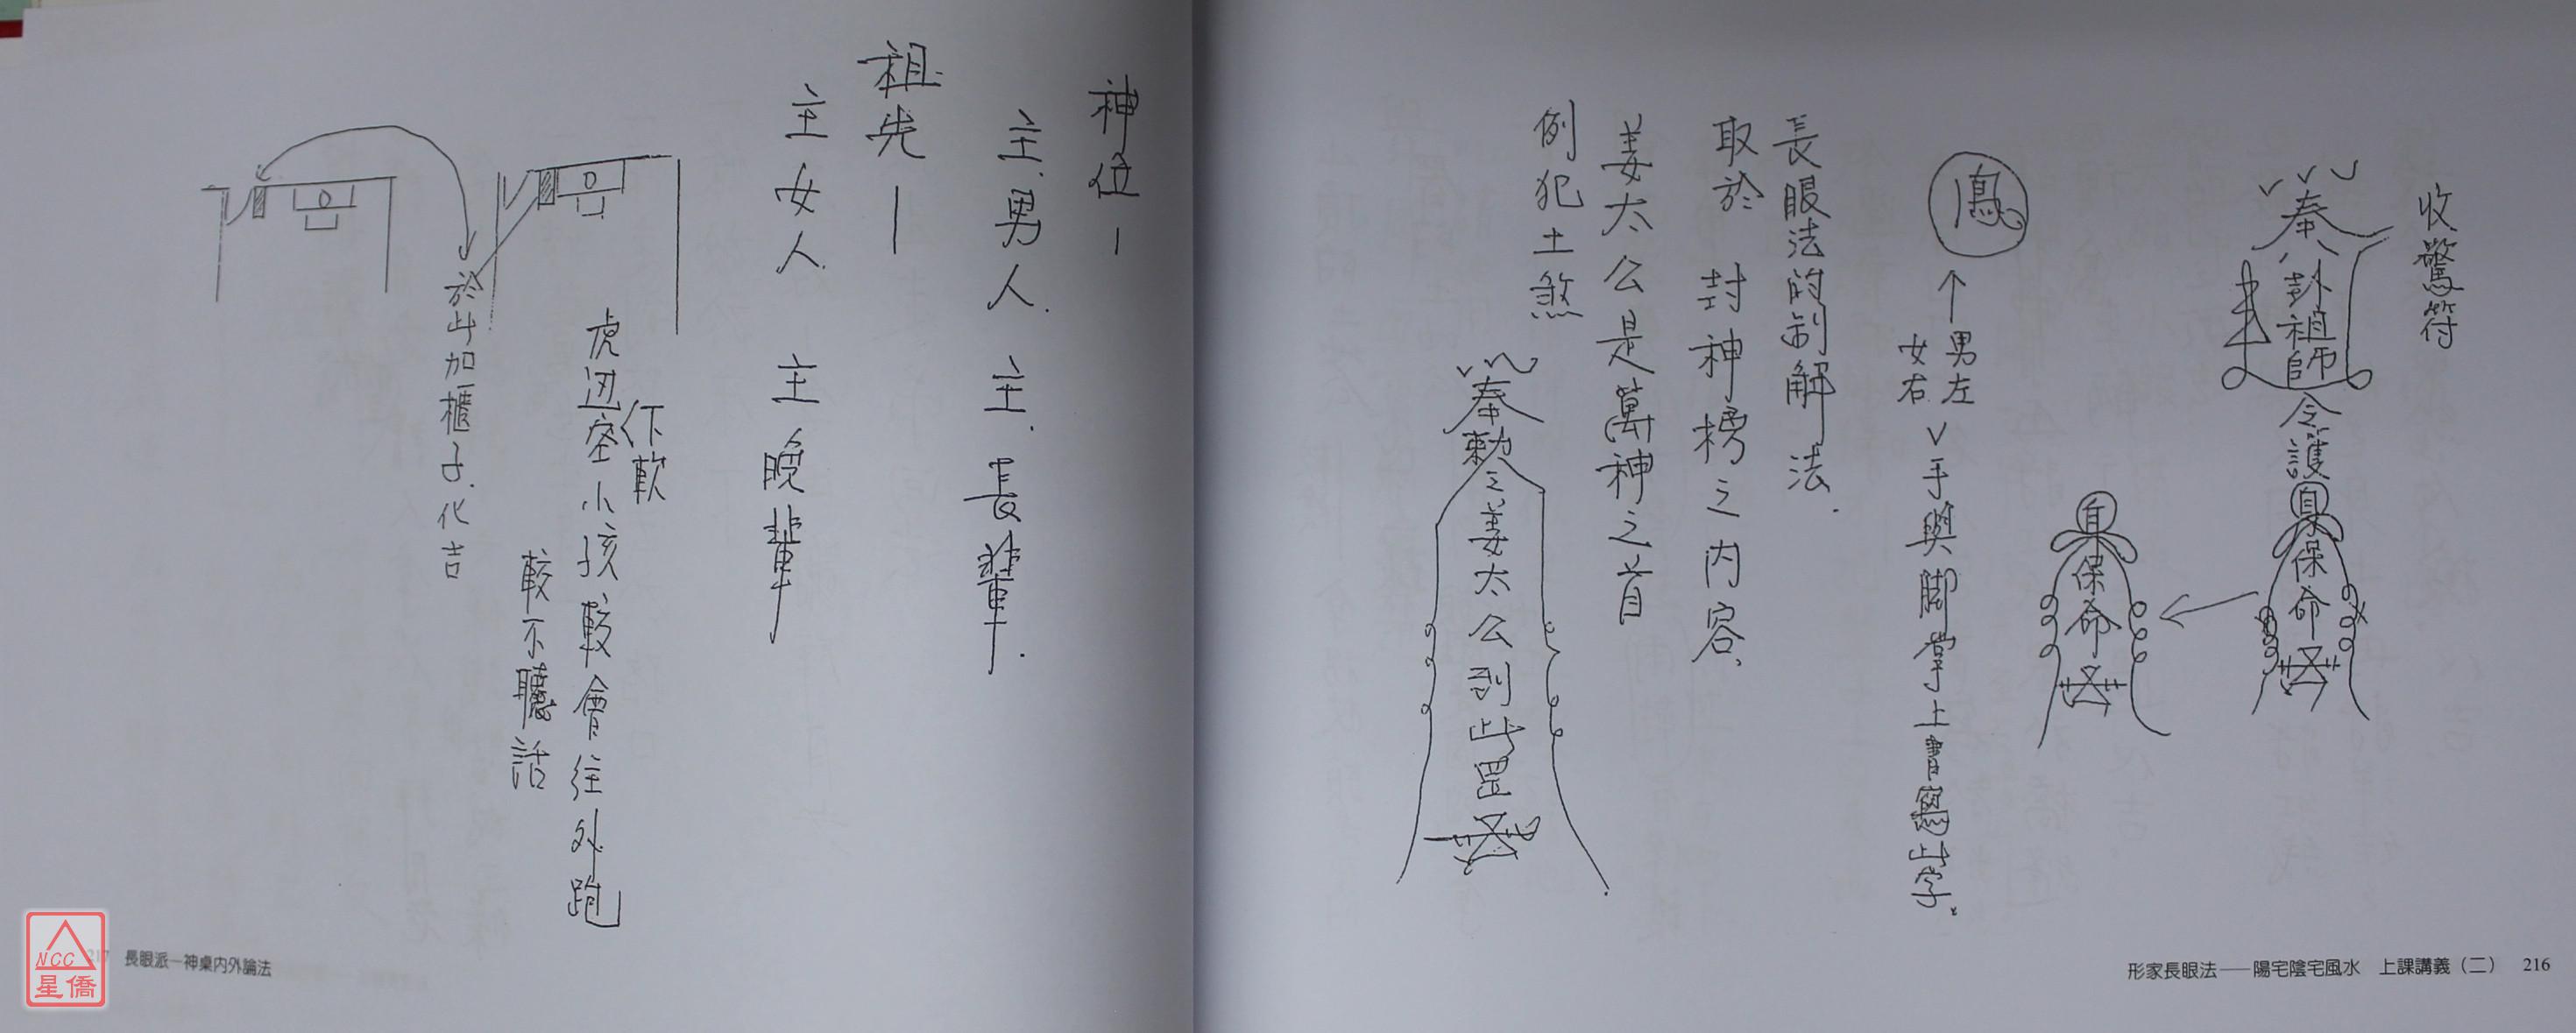 收驚符
奉
彭祖師
令護
身保命
身保命
男左
女右
手與腳掌上書寫此字
長眼法的制解法.
取於 封神榜之内容、
姜太公是萬神之首
例犯土煞
奉勅令姜太公到此罡
形家長眼法——陽宅陰宅風水 上課講義(二) 216
神位—
主、男人. 主、長輩.
祖先—
主女人 主晚輩
虎边空小孩較會往外跑
下軟
較不聽話
於此加櫃子.化吉
217 長眼派—神桌内外論法
NCC
星僑